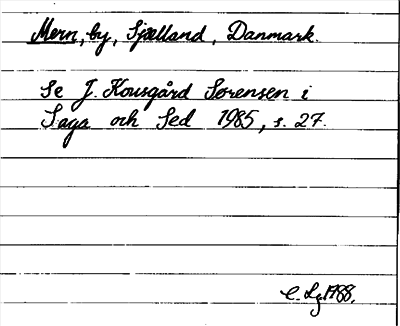 Mern, by, Sjælland, Danmark.
Se J. Kousgård Sørensen i
Saga och Sed 1985, s. 27.
C. Lg 1988.